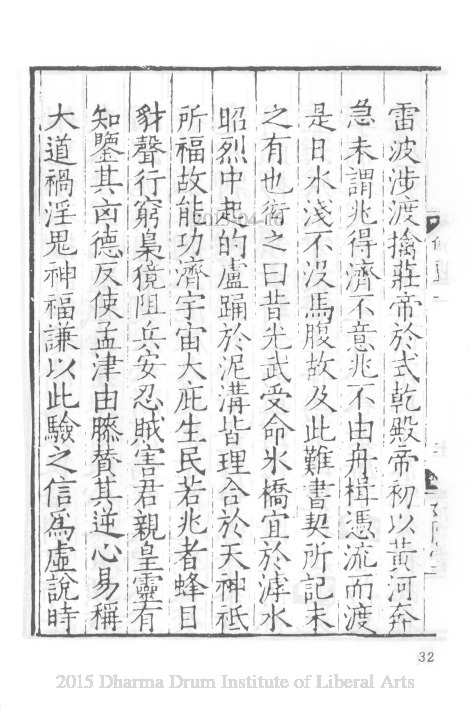 雷波涉渡擒莊帝於式乾殿帝初以黃河奔
急未謂兆得濟不意兆不由舟楫憑流而渡
是日水淺不沒馬腹故及此難書契所記未
之有也衒之曰昔光武受命氷橋宜於滹水
昭烈中起的盧踊於泥溝皆理合於天神祗
所福故能功濟宇宙大庇生民若兆者蜂目
豺聲行窮梟獍阻兵安忍賊害君親皇靈有
知鑒其凶德反使孟津由膝贊其逆心易稱
大道禍淫鬼神福謙以此驗之信爲虛說時
32
2015 Dharma Drum Institute of Liberal Arts